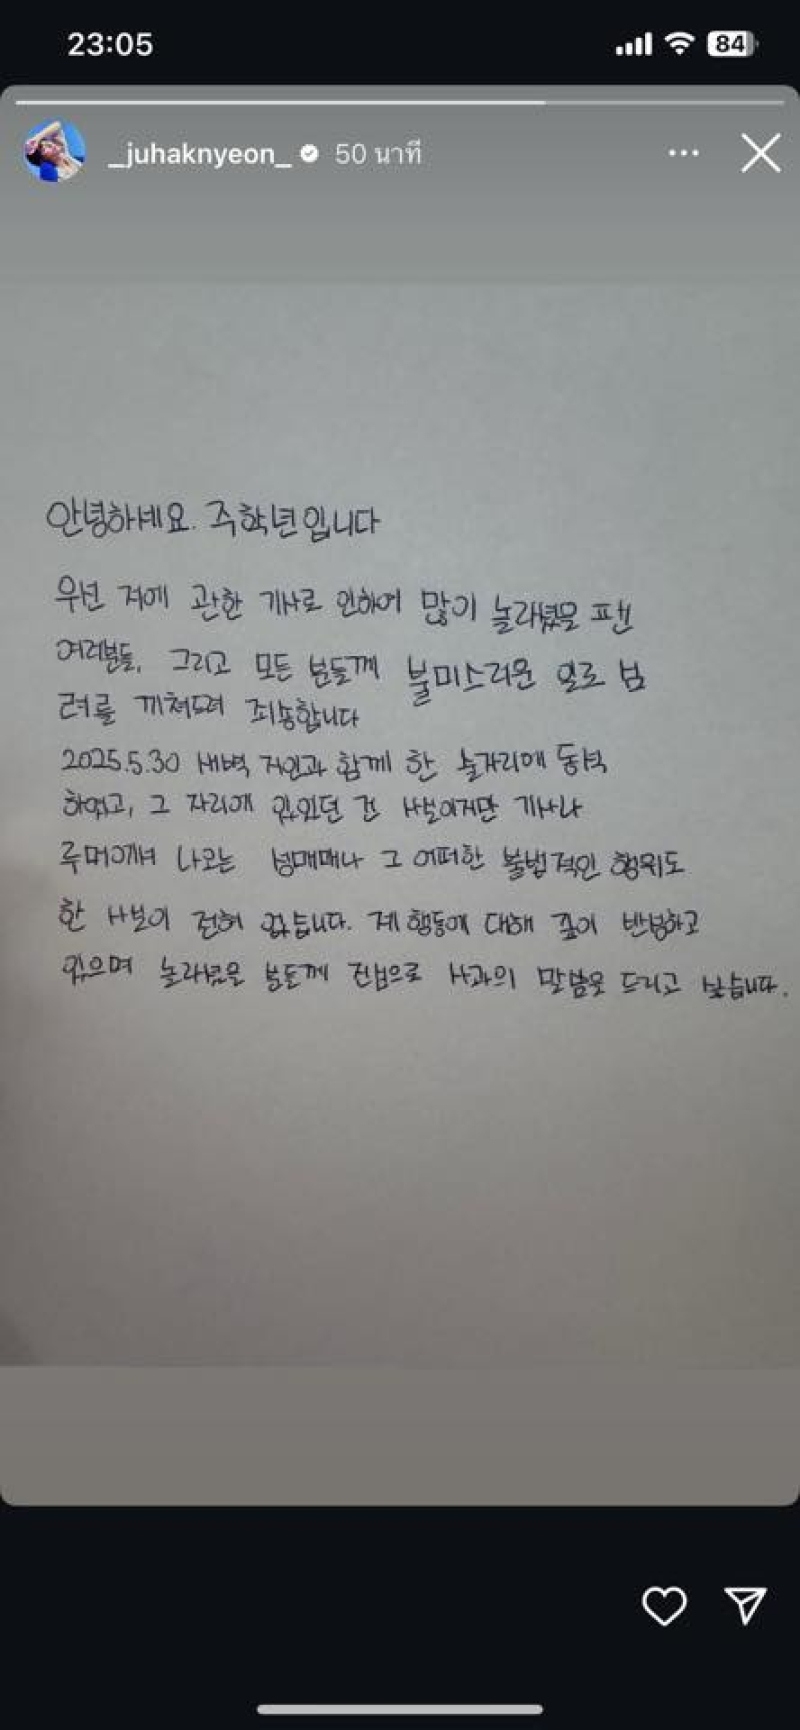 23:05
84
_juhaknyeon_ 50 นาที
안녕하세요. 주학년입니다
우선 저에 관한 기사로 인하여 많이 놀라셨을 팬
여러분들, 그리고 모든 분들께 불미스러운 일로 심
려를 끼쳐드려 죄송합니다
2025.5.30 새벽 지인과 함께 한 술자리에 동석
하였고, 그 자리에 있었던 건 사실이지만 기사나
루머에서 나오는 성매매나 그 어떠한 불법적인 행위도
한 사실이 전혀 없습니다. 제 행동에 대해 깊이 반성하고
있으며 놀라셨을 분들께 진심으로 사과의 말씀을 드리고 싶습니다.